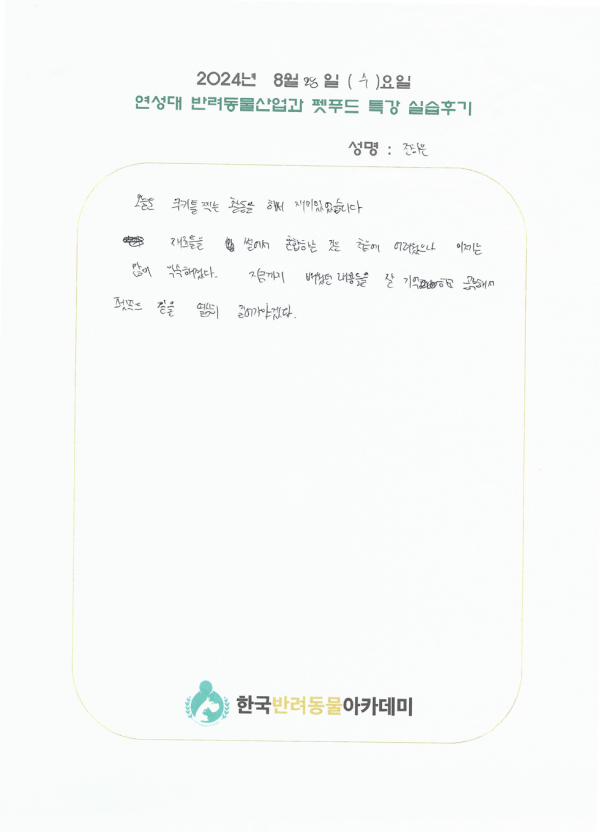 2024년 8월 28일 (수)요일
연성대 반려동물산업과 펫푸드 특강 실습후기
성명 :
오늘은 쿠키틀 찍는 활동을 해서 재미있었습니다
재료들을 썰어서 혼합하는 것은 초반에 어려웠으나 이제는
많이 익숙해졌다. 지금까지 배웠던 내용들을 잘 기억하고 공부해서
펫푸드 길을 열심히 걸어가야겠다.
한국반려동물아카데미